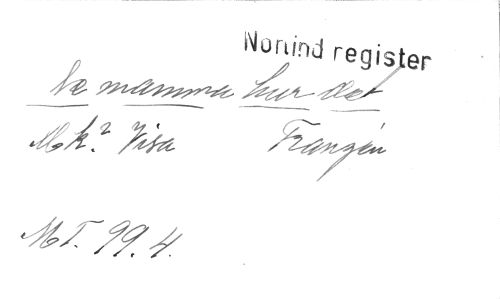 Norlind register
Se mamma hur det
Mk? Visa Franzén
MT. 99.4.